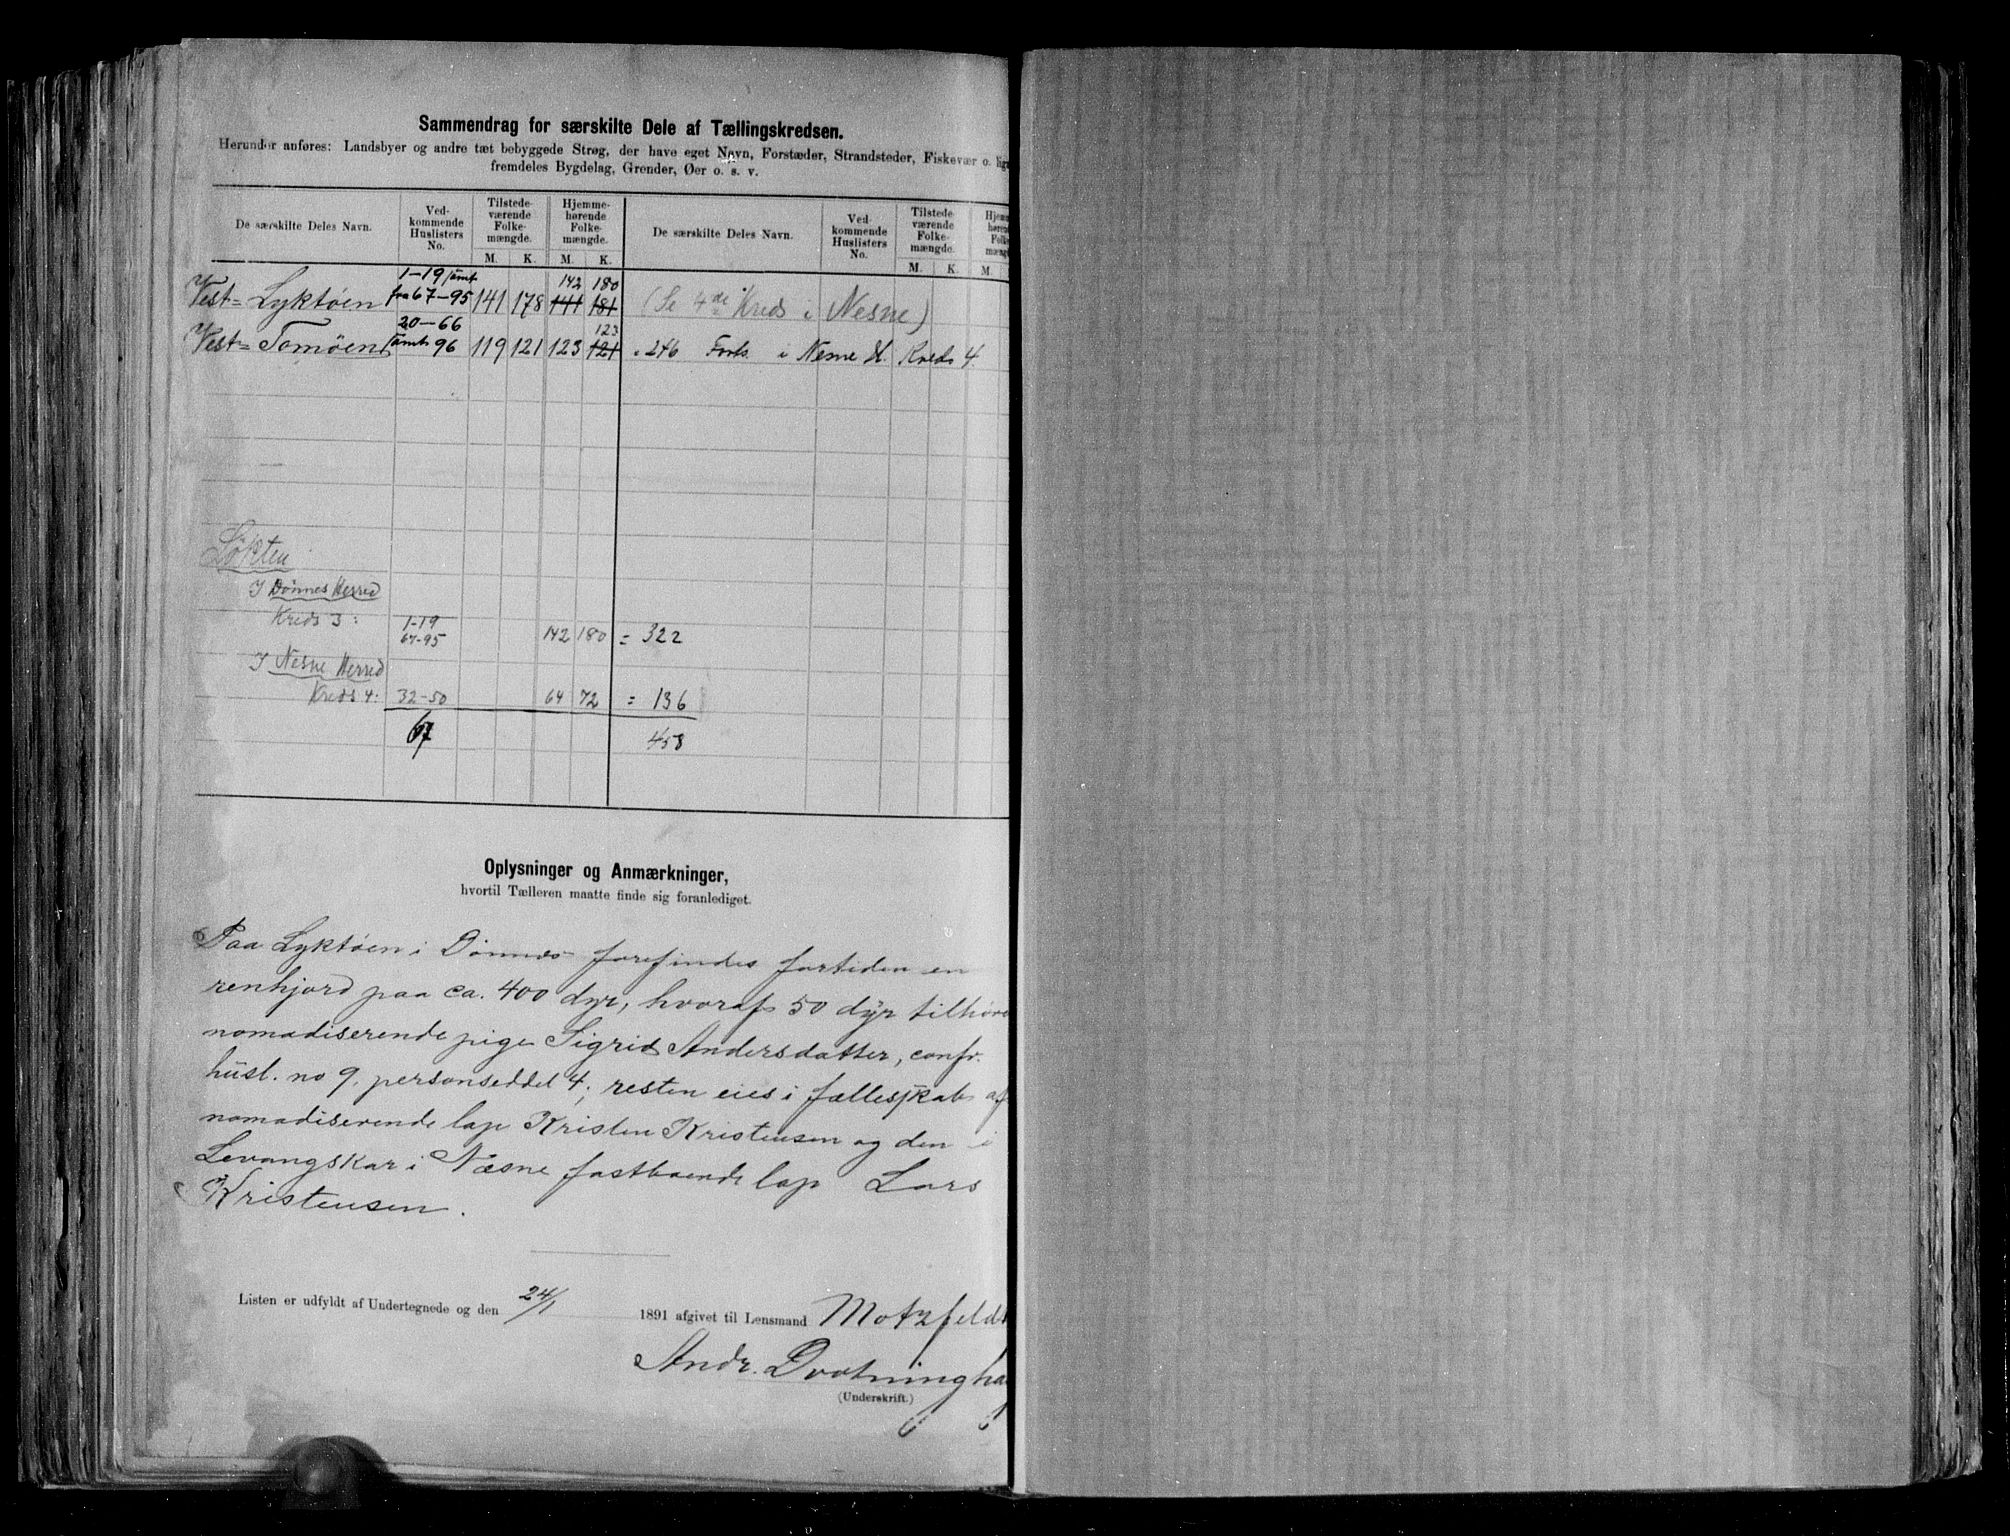 Sammendrag for særskilte Dele af Tællingskredsen.
Herunder anføres: Landsbyer og andre tæt bebyggede Strøg, der have eget Navn, Forstæder, Strandsteder, Fiskevær o. lign
fremdeles Bygdelag, Grender, Øer o. s. v.
De særskilte Deles Navn. Ved-kommende Huslisters No. Tilstede-værende Folke-mængde. Hjemme-hørende Folke-mængde. De særskilte Deles Navn. Ved kommende Huslisters No. Tilstede værende Folke-mængde. Hjem høren Folk mængd
M. K. M. K. M. K. M.
1-19 samt 142 180
Vest= Lyktøen fra 67-95 141 178 141 181 (Se 4de Kreds i Nesne)
20-66 123
Vest= Tomøen samt 96 119 121 123 121 246 Forts. i Nesne H. Kreds 4.
Løkten
I Dønnes Herred
Kreds 3: 1-19
67-95 142 180 = 322
I Nesne Herred
Kreds 4: 32-50 64 72 = 136
67 458
Oplysninger og Anmærkninger,
hvortil Tælleren maatte finde sig foranlediget.
Paa Lyktøen i Dønnes forefindes fortiden en
renhjord paa ca. 400 dyr, hvoraf 50 dyr tilhøre
nomadiserende pige Sigrid Andersdatter, confr.
husl. no 9, personseddel 4; resten eies i fællesskab af
nomadiserende lap Kristen Kristensen og den i
Levangskar i Næsne fastboende lap Lars
Kristensen.
Listen er udfyldt af Undertegnede og den 24/1 1891 afgivet til Lensmand Motzfeldt
Andr. Drotningha
(Underskrift.)